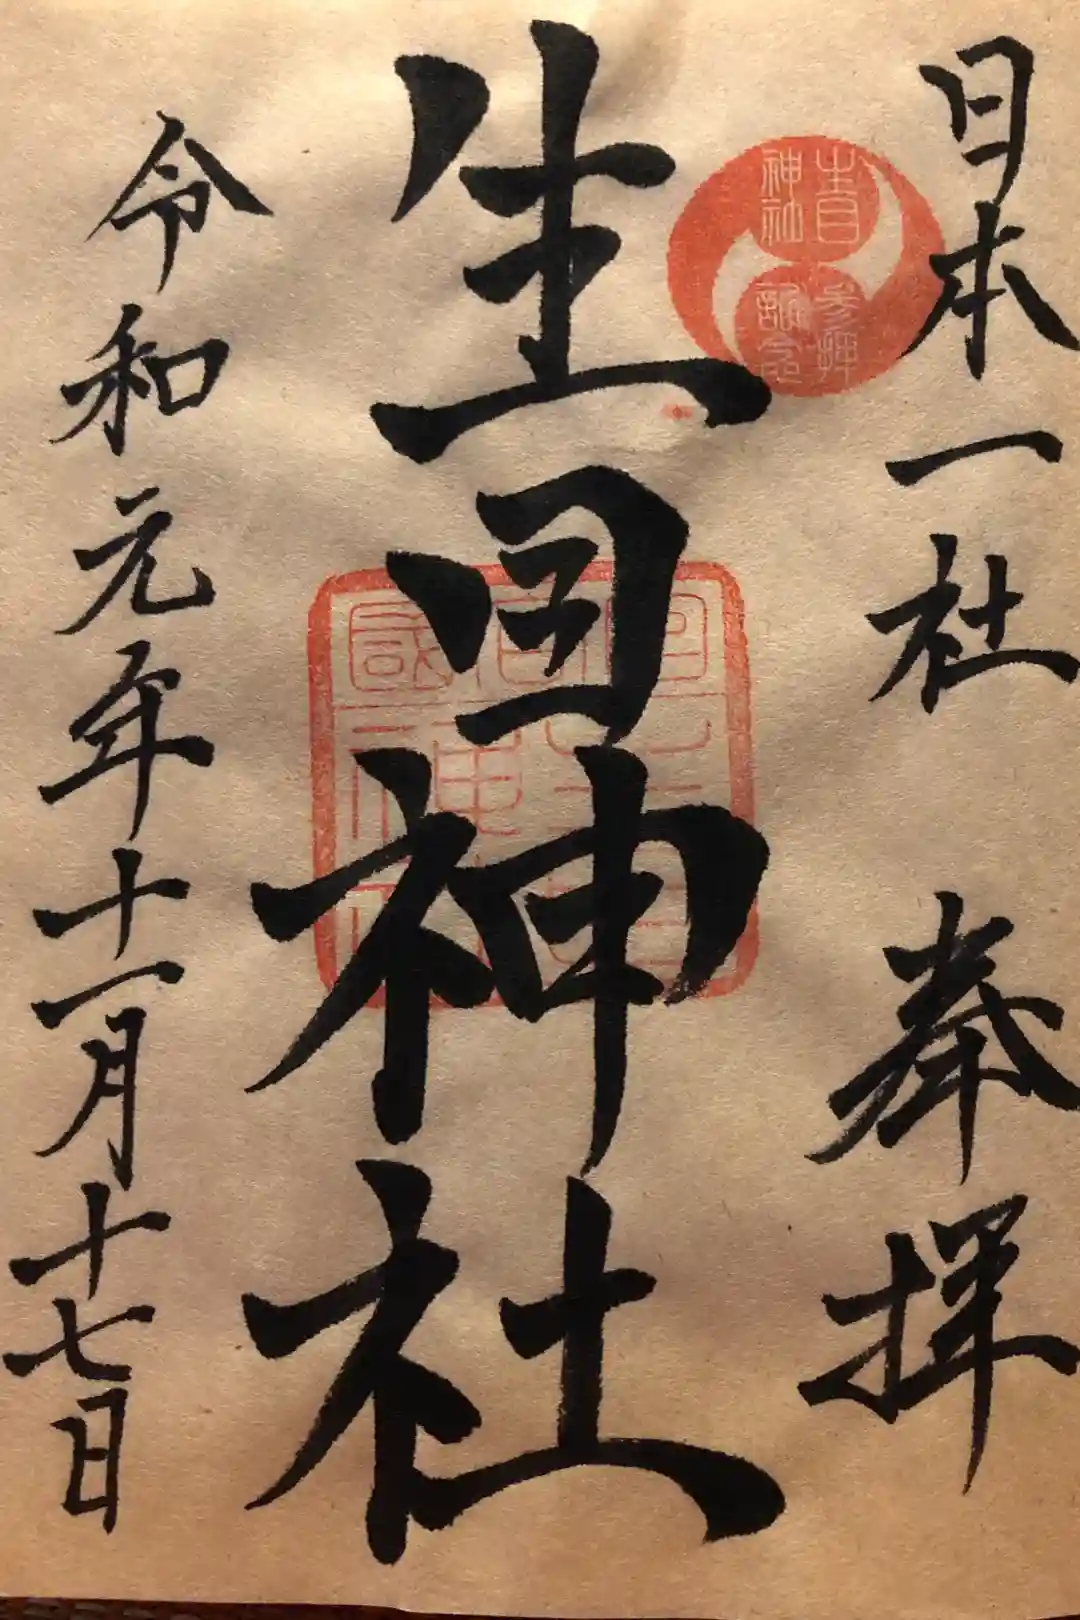 日本一社　奉拝
生目神社
令和元年十一月十七日
生目
神社